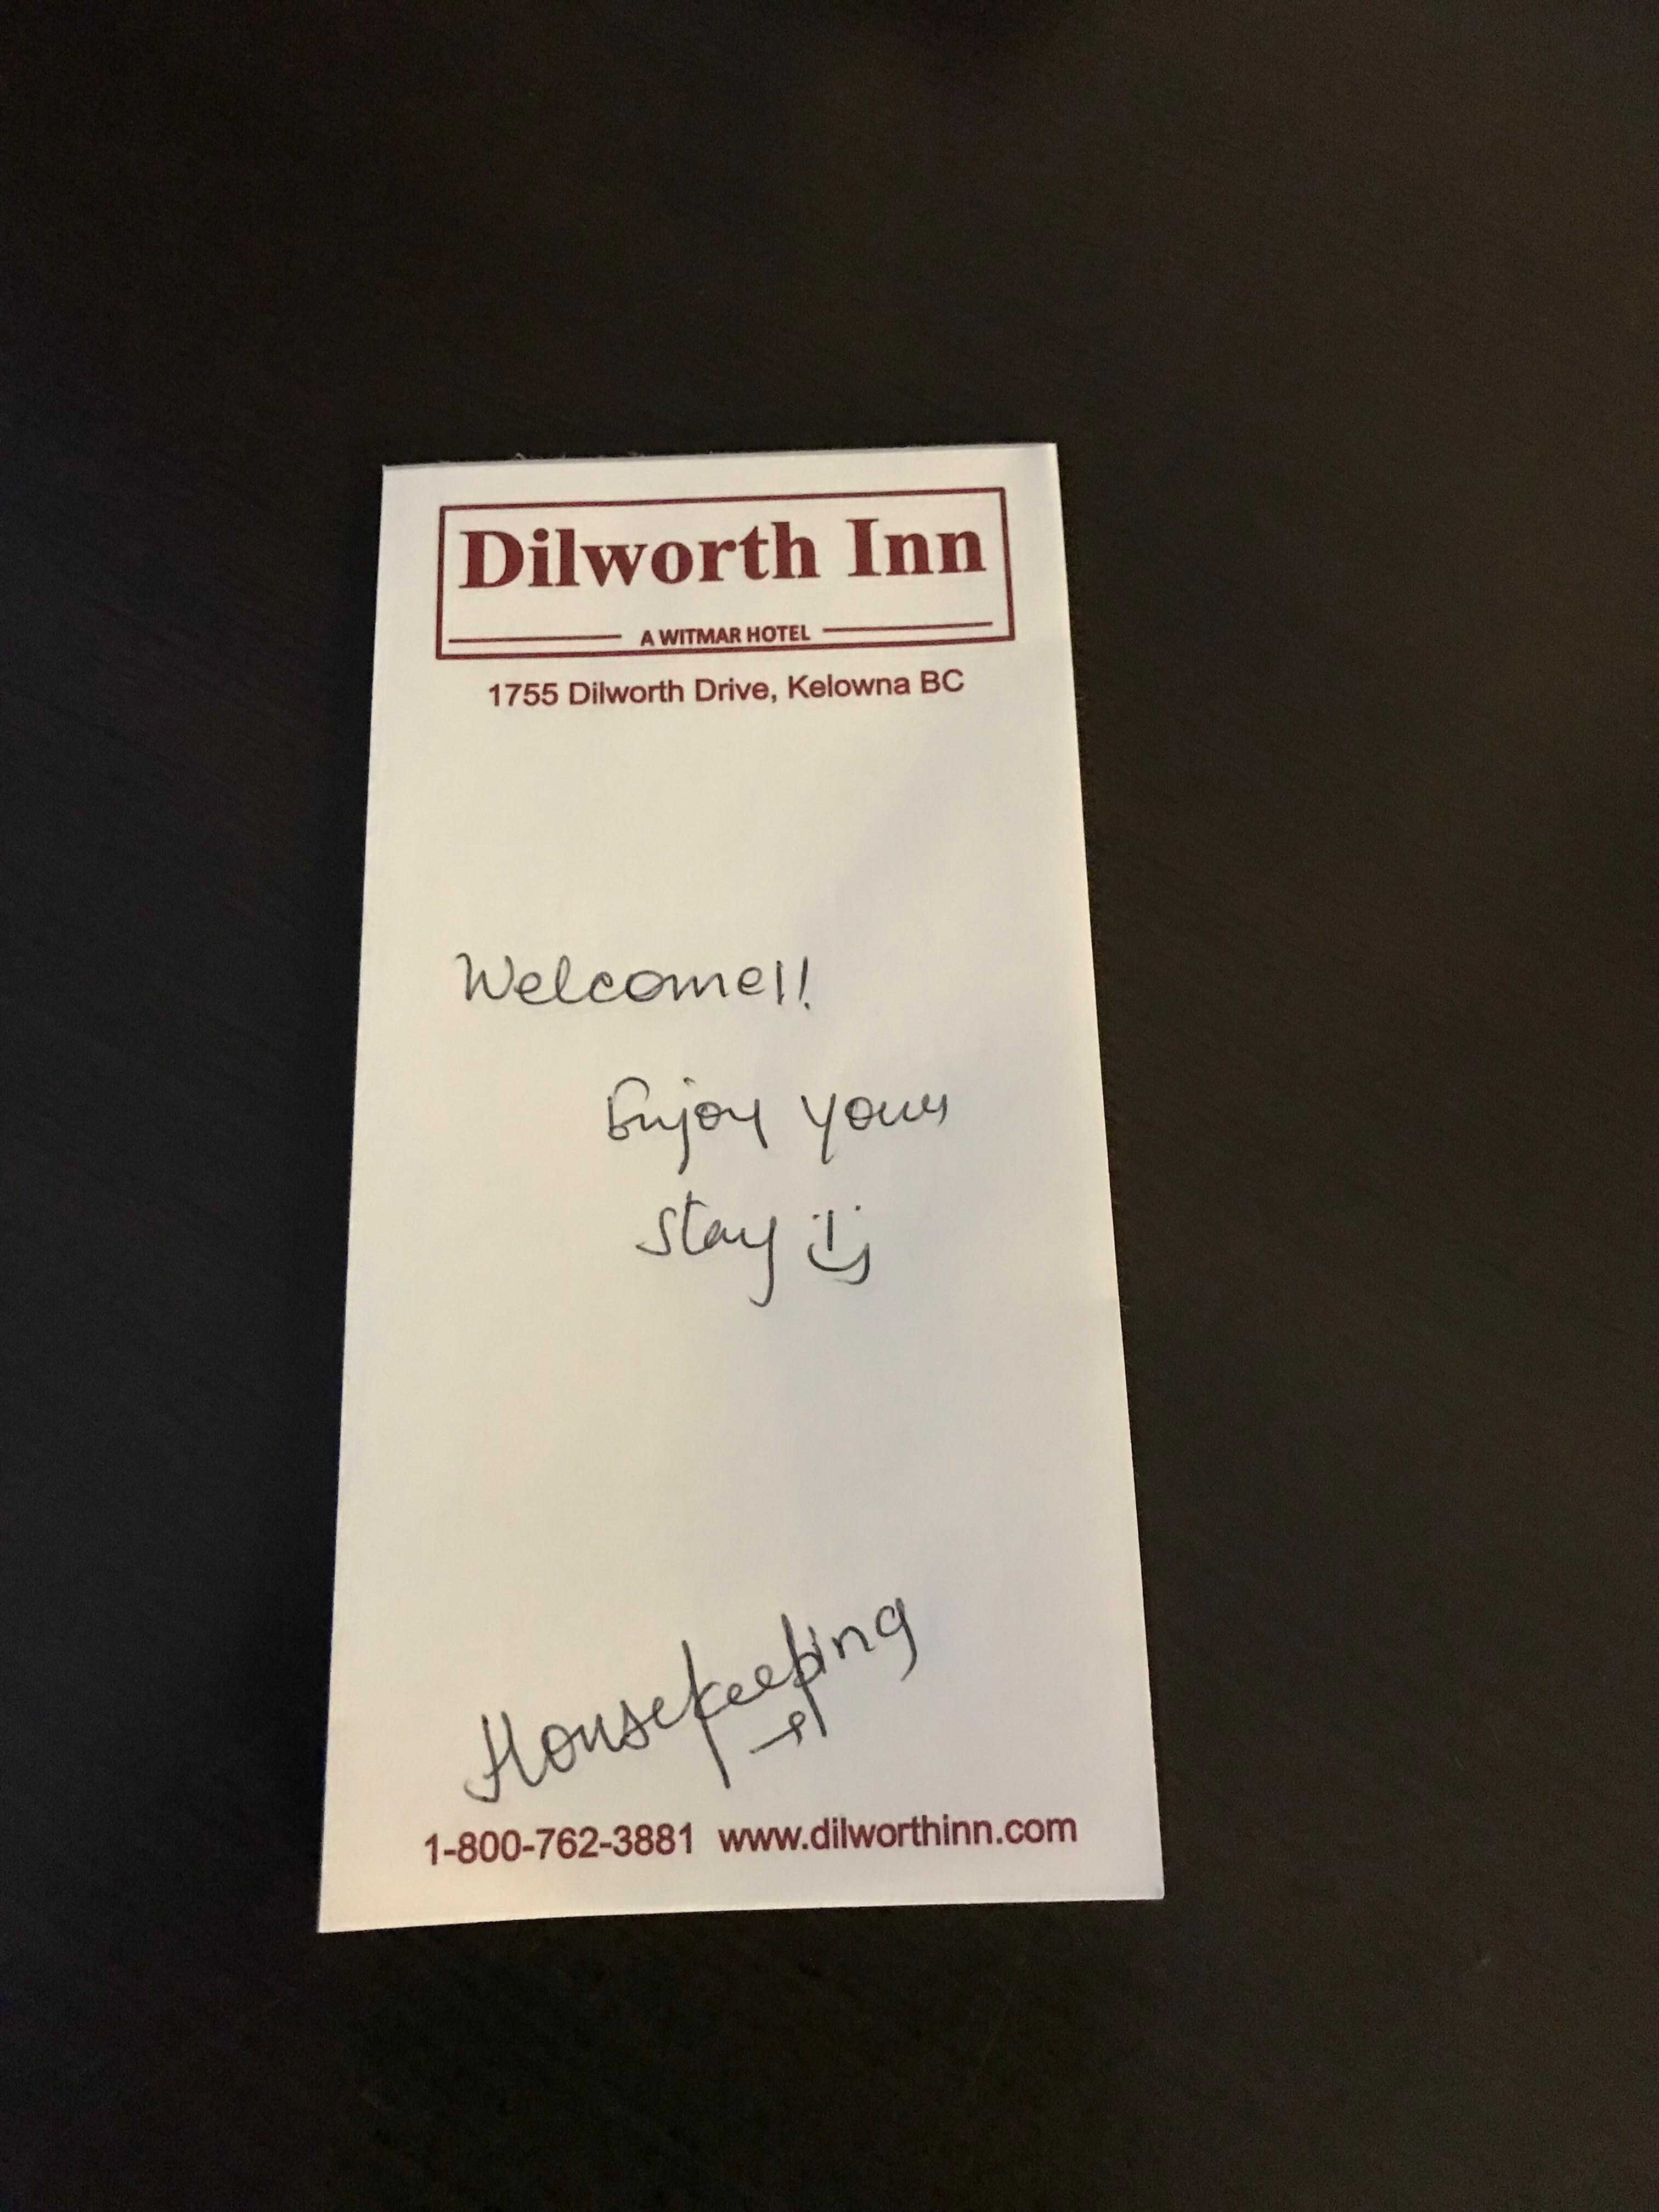 Dilworth Inn
A WITMAR HOTEL
1755 Dilworth Drive, Kelowna BC
Welcome!!
Enjoy your
Stay
Housekeeping
1-800-762-3881 www.dilworthinn.com